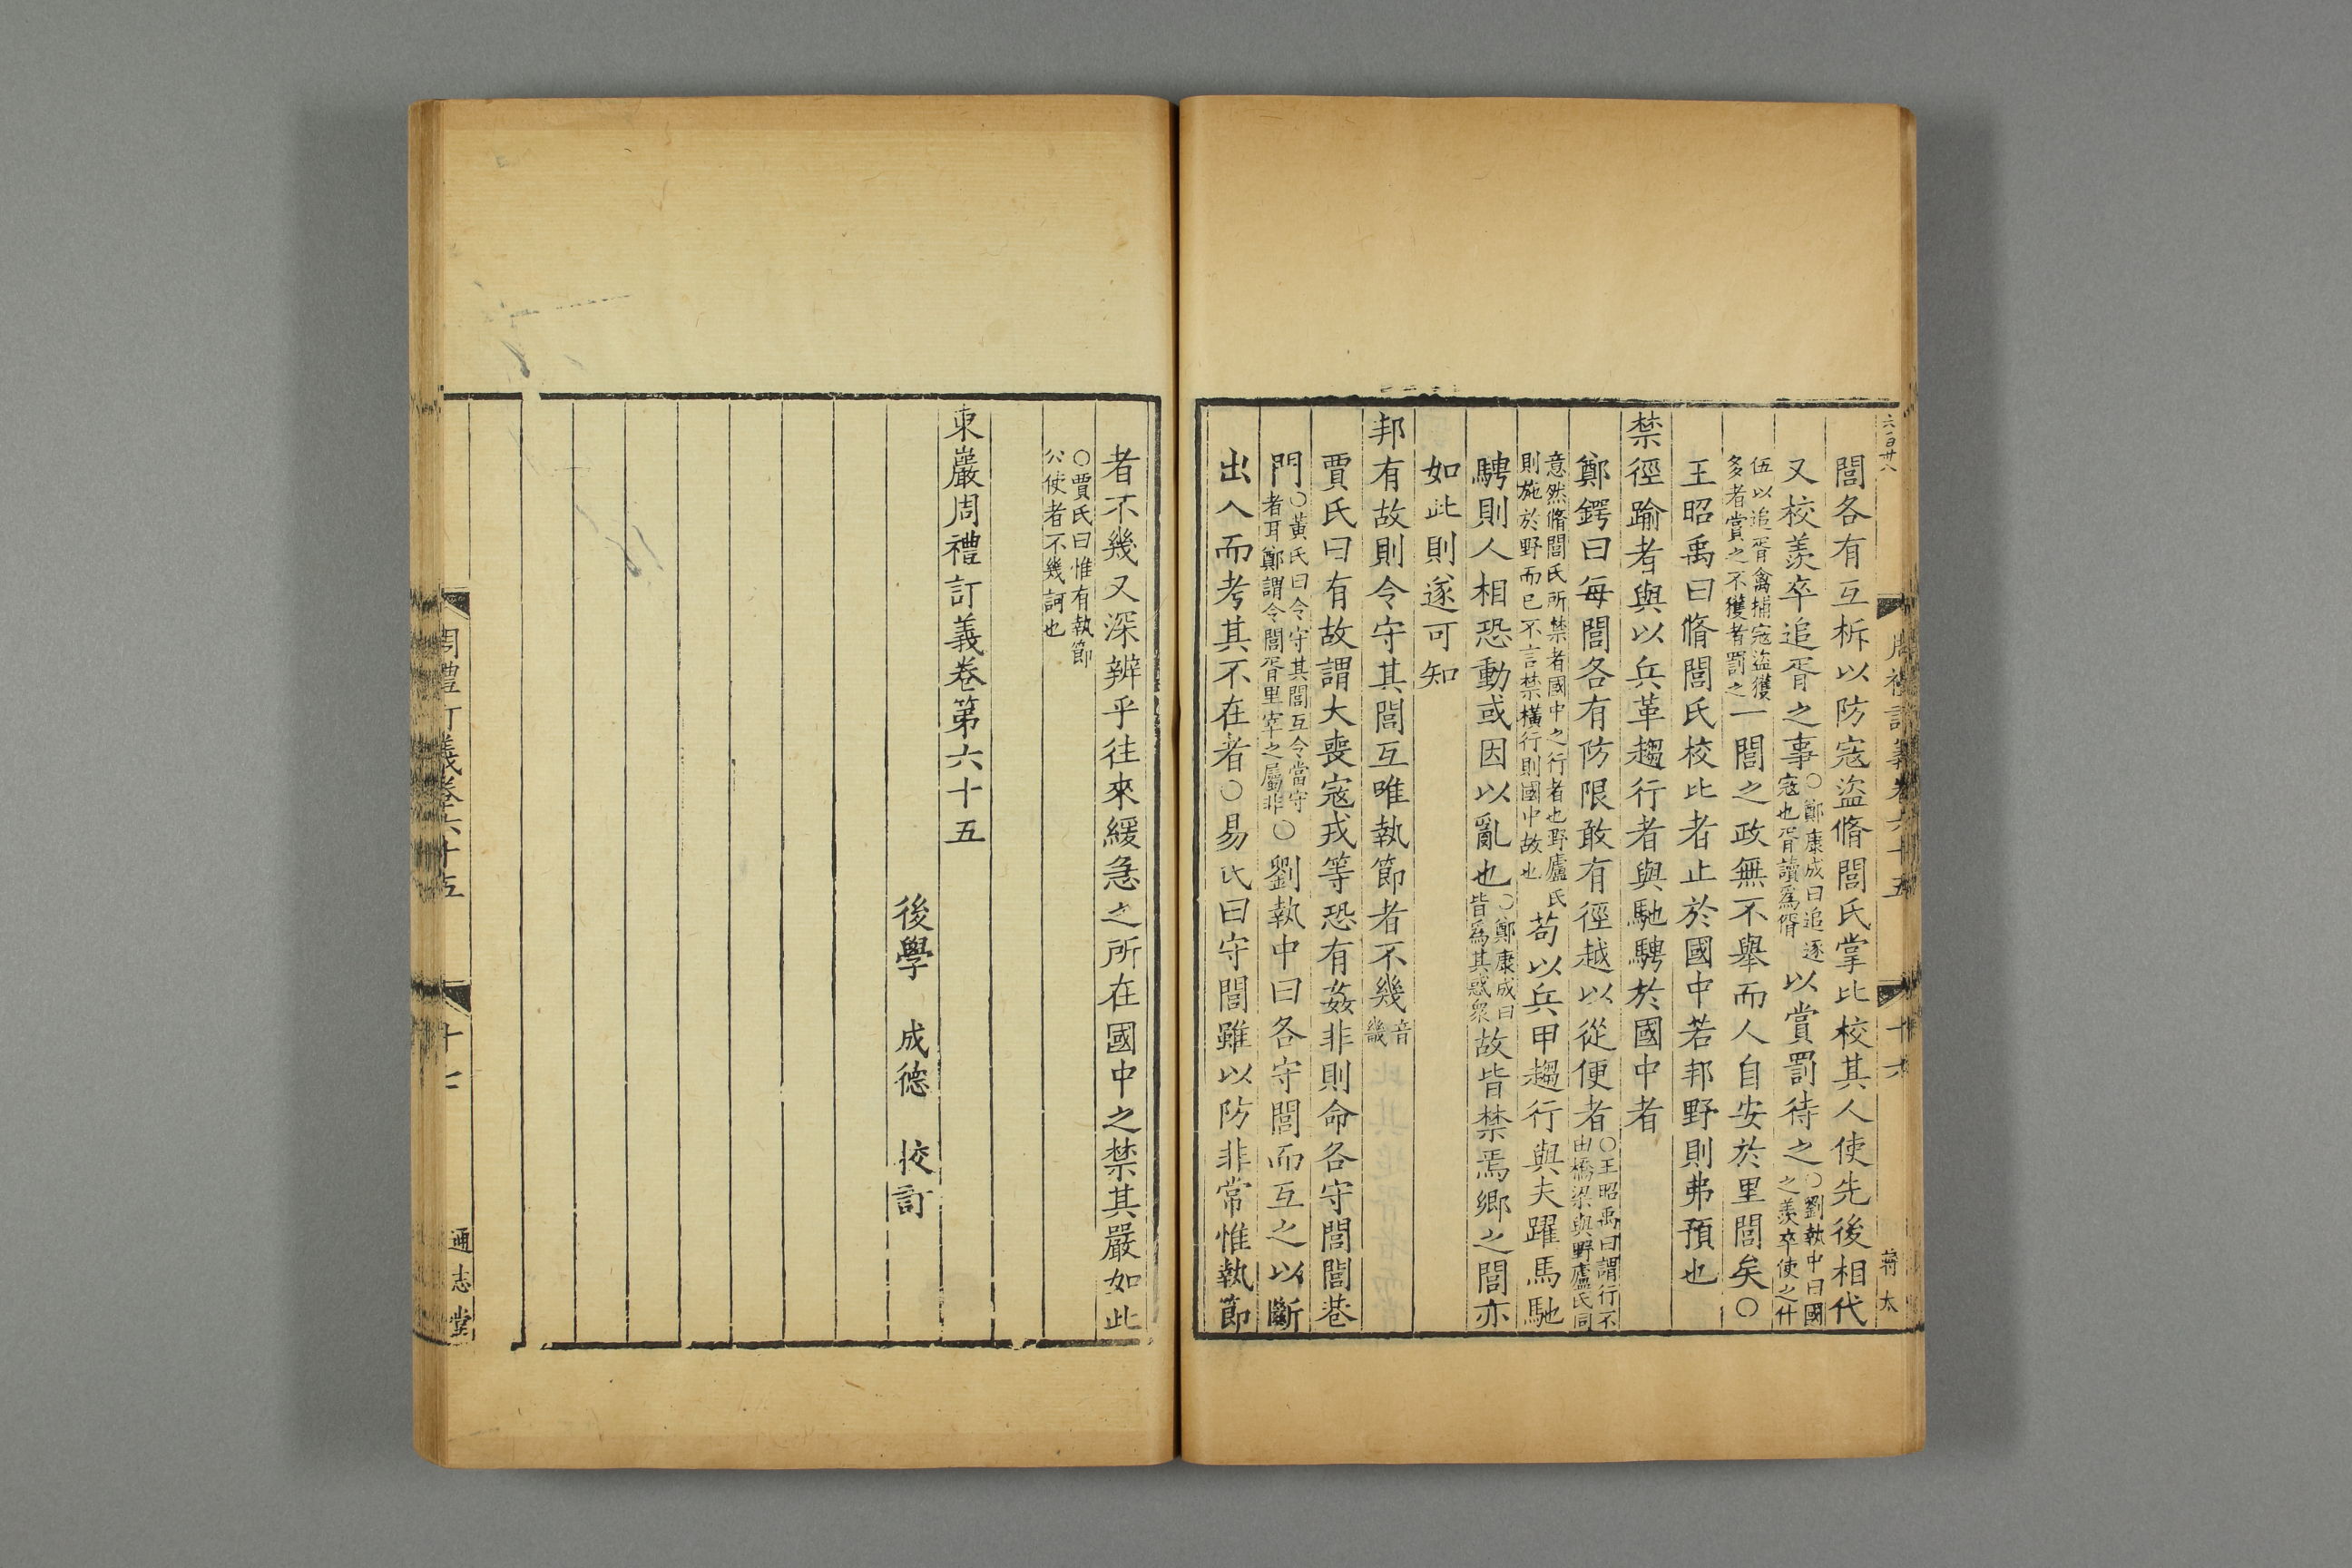 六百廿八
周禮訂義卷六十五
十六
蔣太
閭各有互柝以防寇盜脩閭氏掌比校其人使先後相代
又校羨卒追胥之事○鄭康成曰追逐寇也胥讀爲偦以賞罰待之○劉執中曰國之羨卒使之什
伍以追胥禽捕寇盜獲多者賞之不獲者罰之一閭之政無不舉而人自安於里閭矣○
王昭禹曰脩閭氏校比者止於國中若邦野則弗預也
禁徑踰者與以兵革趨行者與馳騁於國中者
鄭鍔曰每閭各有防限敢有徑越以從便者○王昭禹曰謂行不由橋梁與野廬氏同
意然脩閭氏所禁者國中之行者也野廬氏則施於野而已不言禁橫行則國中故也苟以兵甲趨行與夫躍馬馳
騁則人相恐動或因以亂也○鄭康成曰皆爲其惑衆故皆禁焉鄉之閭亦
如此則遂可知
邦有故則令守其閭互唯執節者不幾音畿
賈氏曰有故謂大喪寇戎等恐有姦非則命各守閭閭巷
門○黃氏曰令守其閭互令當守者耳鄭謂令閭胥里宰之屬非○劉執中曰各守閭而互之以斷
出入而考其不在者○易氏曰守閭雖以防非常惟執節
者不幾又深辨乎往來緩急之所在國中之禁其嚴如此
○賈氏曰惟有執節公使者不幾訶也
東巖周禮訂義卷第六十五
後學 成德 校訂
周禮訂義卷六十五
十七
通志堂